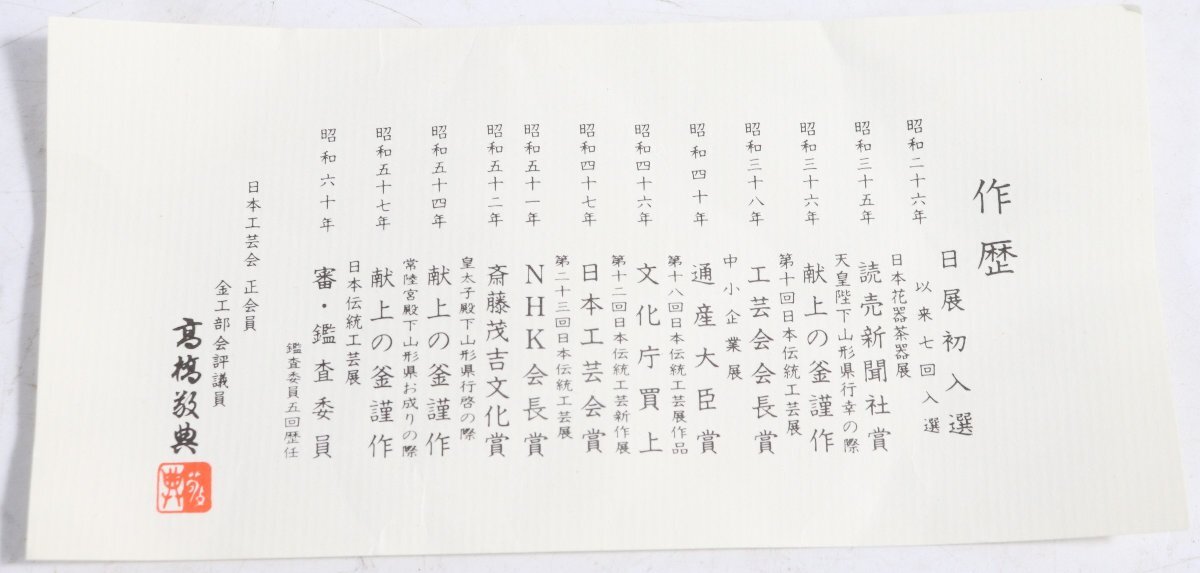 作歴
昭和二十六年
日展初入選
以来七回入選
昭和三十五年
日本花器茶器展
読売新聞社賞
昭和三十六年
天皇陛下山形県行幸の際
献上の釜謹作
昭和三十八年
第十回日本伝統工芸展
工芸会会長賞
昭和四十年
中小企業展
通産大臣賞
昭和四十六年
第十八回日本伝統工芸展作品
文化庁買上
昭和四十七年
第十二回日本伝統工芸新作展
日本工芸会賞
昭和五十一年
第二十三回日本伝統工芸展
NHK会長賞
昭和五十二年
斎藤茂吉文化賞
昭和五十四年
皇太子殿下山形県行啓の際
献上の釜謹作
昭和五十七年
常陸宮殿下山形県お成りの際
献上の釜謹作
昭和六十年
日本伝統工芸展
審・鑑査委員
鑑査委員五回歴任
日本工芸会 正会員
金工部会評議員
髙橋敬典